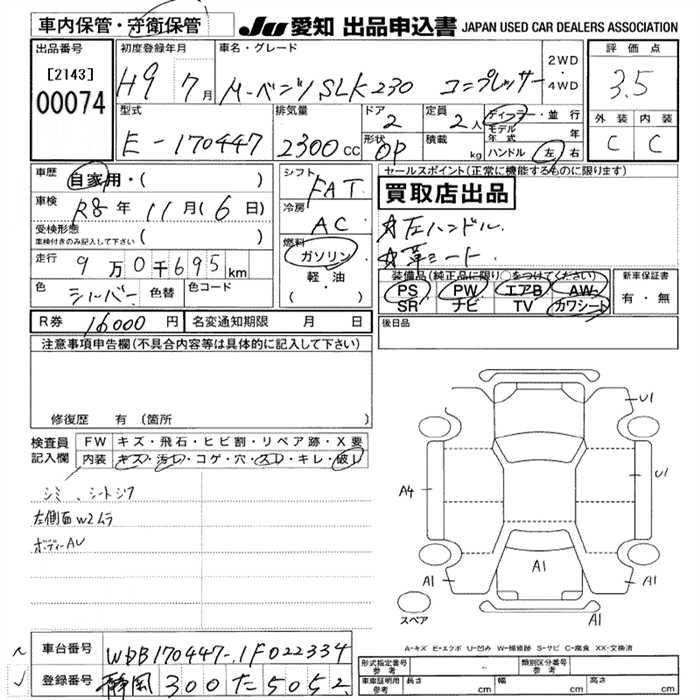 車内保管・守衛保管
JU 愛知 出品申込書 JAPAN USED CAR DEALERS ASSOCIATION
出品番号 初度登録年月 車名・グレード 評価点
[2143] H9 7月 Mーベンツ SLK230 コンプレッサー 2WD・4WD 3.5
00074
型式 排気量 ドア 定員 ディーラー・並行 外装 内装
E-170447 2300CC 2 2人 モデル年式 年 C C
形状 OP 積載 kg ハンドル 左・右
車歴 自家用・( ) シフト FAT セールスポイント(正常に機能するものに限ります)
買取店出品
車検 R8年11月(6日) 冷房 AC ☆左ハンドル.
受検形態 ☆革シート.
車検付きのみ記入して下さい ( ) 燃料
走行 9万0千695km ガソリン 装備品(純正品に限り○をつけてください) 新車保証書
軽・油 PS PW エアB AW 有・無
色 シルバー 色替 色コード ( ) SR ナビ TV カワシート
R券 16000円 名変通知期限 月 日 後日品
注意事項申告欄(不具合内容等は具体的に記入して下さい)
修復歴 有(箇所 )
検査員 FW キズ・飛石・ヒビ割・リペア跡・X要
記入欄 内装 キズ・汚レ・コゲ・穴・スレ・キレ・破レ
シミ、シートシワ
左側面W2ムラ
ボディーAU
U1
A4 U1
A1 A1 A1
スペア A1
A-キズ E-エクボ U-凹み W-補修跡 S-サビ C-腐食 XX-交換済
車台番号 WDB170447-1F022334
登録番号 静岡300た5052
形式指定番号 参考 類別区分番号 参考
車庫証明用 参考 長さ cm 幅 cm 高さ cm